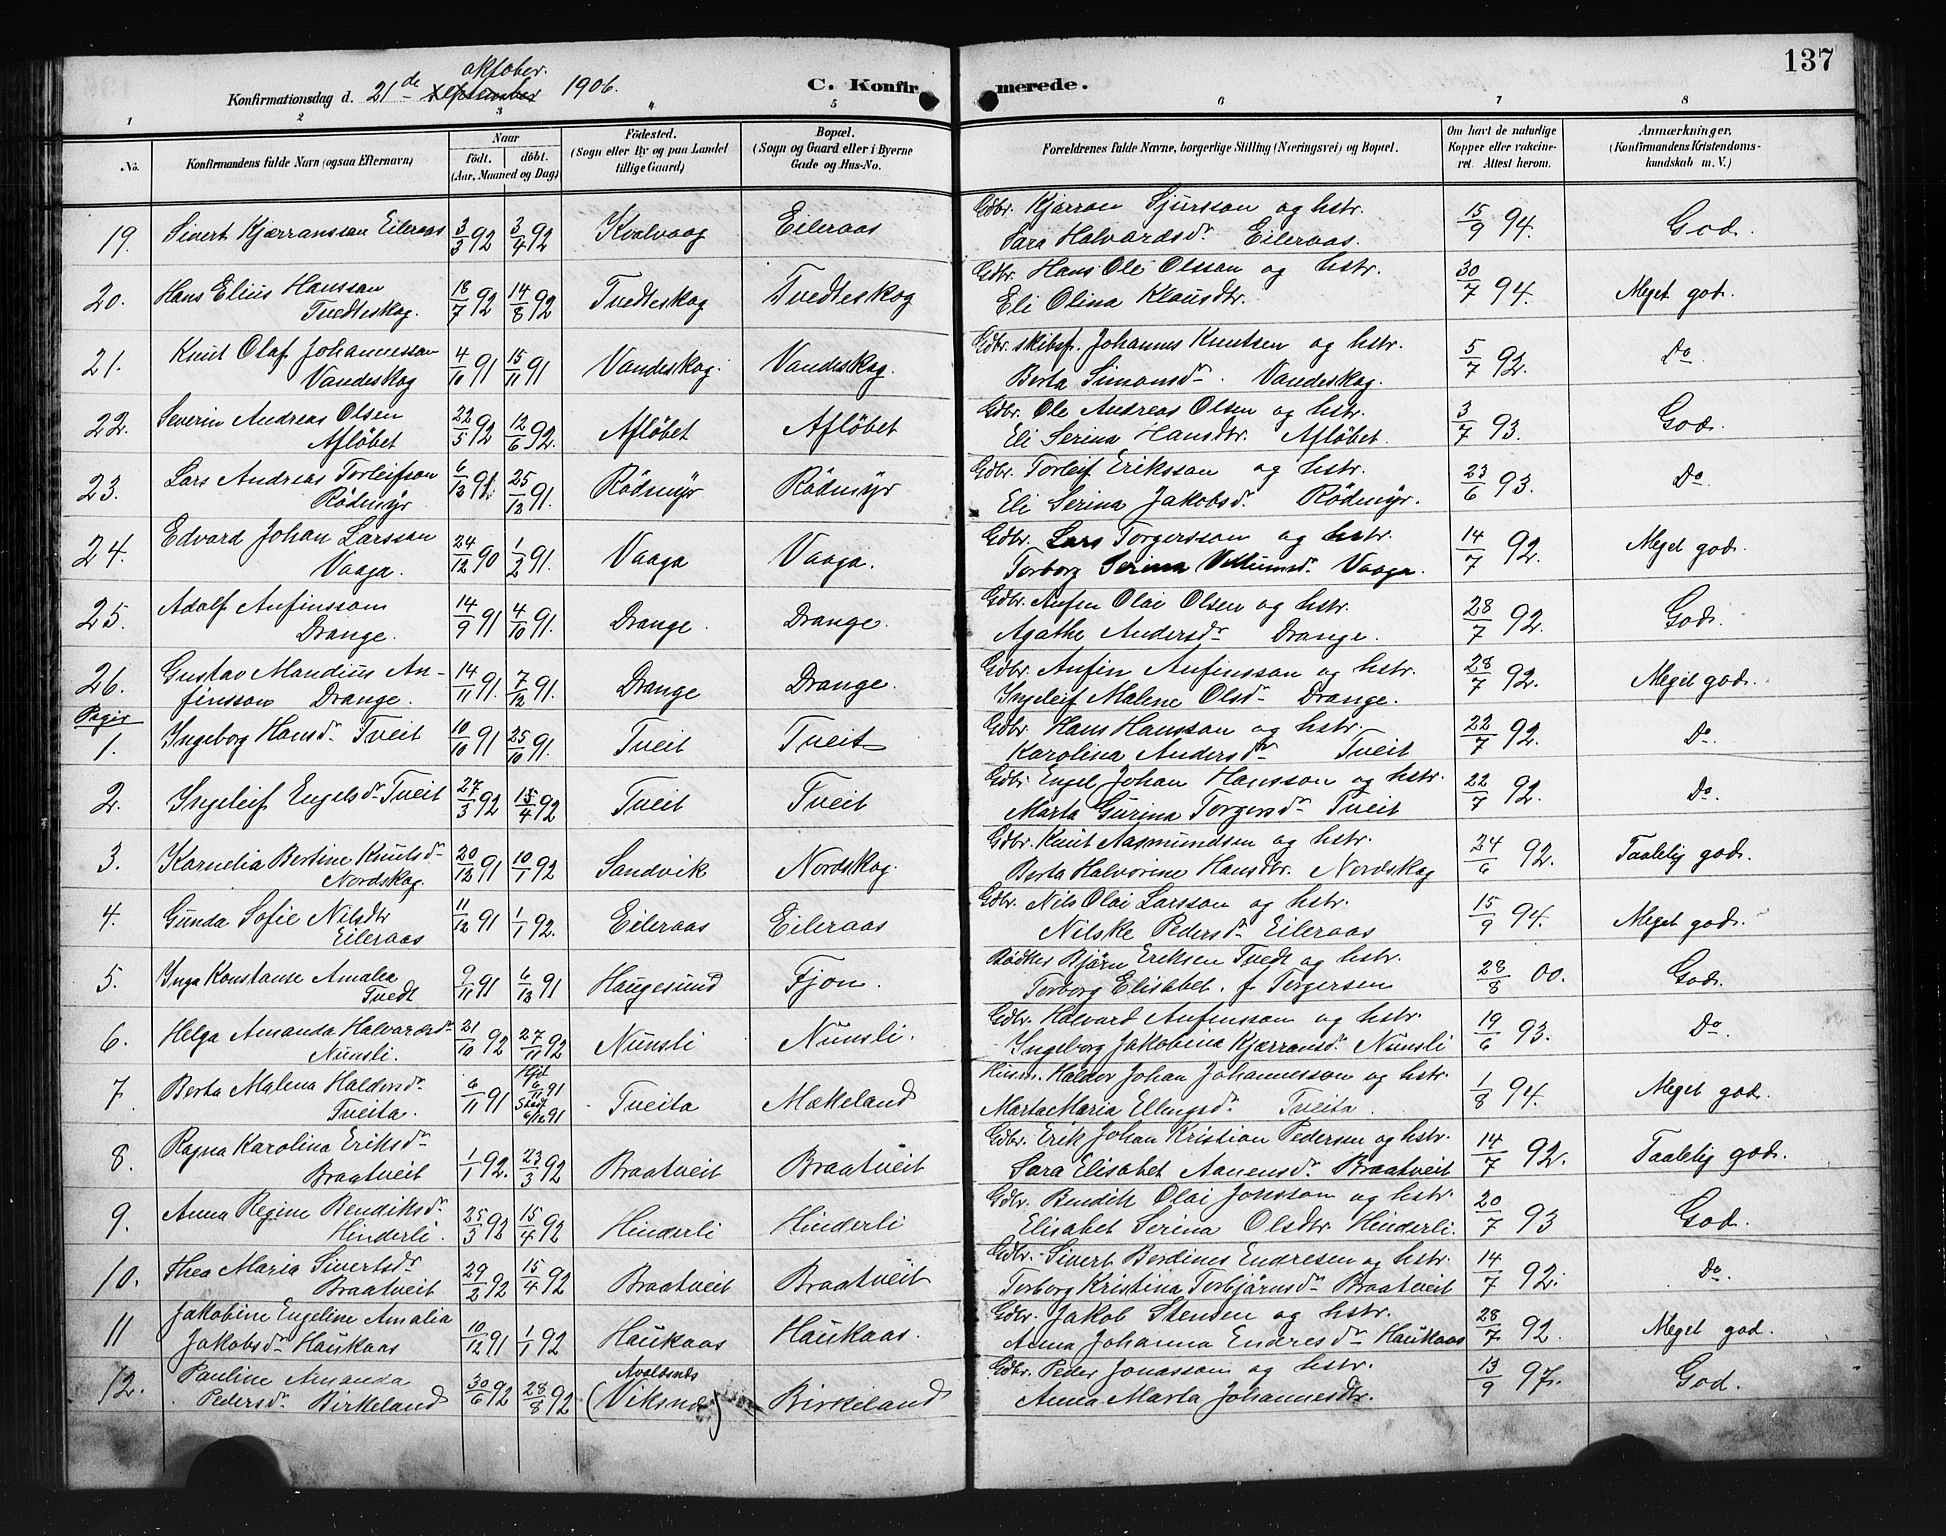 137
oktober.
Konfirmationsdag d. 21de september 1906. C. Konfirmerede.
1 2 3 4 5 6 7 8
No. Konfirmandens fulde Navn (ogsaa Efternavn) Naar födt. döbt. (Aar, Maaned og Dag) Födested. (Sogn eller By og paa Landet tillige Gaard) Bopæl. (Sogn og Gaard eller i Byerne Gade og Hus-No. Forældrenes fulde Navne, borgerlige Stilling (Næringsvei) og Bopæl. Om havt de naturlige Kopper eller vakcineret. Attest herom. Anmærkninger, (Konfirmandens Kristendomskundskab m. V.)
19. Sivert Kjærransson Eileraas 3/3 92 3/4 92 Kvalvaag Eileraas Gdbr. Kjærran Sjursson og hstr. 15/9 94. God.
Sara Halvardsdr. Eileraas.
20. Hans Elius Hansson 18/7 92 14/8 92 Tvedteskog Tvedteskog Gdbr. Hans Ole Olsson og hstr. 30/7 94. Meget god.
Tvedteskog. Eli Olina Klausdtr.
21. Knut Olaf Johannesson 4/10 91 15/11 91 Vandeskog. Vandeskog. Gdbr. skibsf. Johannes Knutsen og hstr. 5/7 92. Do.
Vandeskog Berta Simonsdr. Vandeskog.
22. Severin Andreas Olsen 22/5 92 12/6 92. Afløbet Afløbet Gdbr. Ole Andreas Olsen og hstr. 3/7 93. God.
Afløbet Eli Serina Hansdtr. Afløbet.
23. Lars Andreas Torleifson 6/12 91. 25/12 91. Rödmyr Rödmyr Gdbr. Torleif Eriksson og hstr. 23/6 93. Do.
Rödmyr Eli Serina Jakobsdr. Rödmyr.
24. Edvard Johan Larsson 24/12 90 1/2 91. Vaaga Vaaga. Gdbr. Lars Torgersson og hstr. 14/7 92. Meget god.
Vaaga. Torborg Serina Villumsdr. Vaaga.
25. Adolf Anfinsson 14/9 91 4/10 91. Drange. Drange. Gdbr. Anfin Olai Olsen og hstr. 28/7 92. God.
Drange. Agathe Andersdr. Drange.
26. Gustav Mandius An- 14/11 91. 7/12 91. Drange Drange. Gdbr. Anfin Anfinsson og hstr. 28/7 92. Meget god.
finsson Drange. Ingeleif Malene Olsdr. Drange.
Piger
1. Ingeborg Hansdr. Tveit 10/10 91 25/10 91. Tveit Tveit Gdbr. Hans Hansson og hstr. 22/7 92. Do.
Karolina Andersdr. Tveit
2. Ingeleif Engelsdr. Tveit 27/3 92 15/4 92 Tveit Tveit Gdbr. Engel Johan Hansson og hstr. 22/7 92. Do.
Marta Gurina Torgersdr. Tveit
3. Kornelia Bertine Knutsdr. 20/12 91 10/1 92 Sandvik Nordskog. Gdbr. Knut Aasmundsen og hstr. 24/6 92. Taalelig god.
Nordskog. Berta Halvorine Hansdtr. Nordskog
4. Gunda Sofie Nilsdtr 11/12 91 1/1 92. Eileraas Eileraas Gdbr. Nils Olai Larsson og hstr. 15/9 94. Meget god.
Eileraas Nilske Pedersdr. Eileraas
5. Inga Konstanse Amalia 9/11 91 6/12 91 Haugesund Fjon. Bödker Bjørn Eriksen Tvedt og hstr. 28/8 00. God.
Tvedt Torborg Elisabet. f Torgersen
6. Helga Amanda Halvardsdr. 21/10 92 27/11 92 Nunsli Nunsli. Gdbr. Halvard Anfinsson og hstr. 19/6 93. Do.
Nunsli. Ingeborg Jakobina Kjærransdr. Nunsli
7. Berta Malena Haldorsdr. 6/11 91 Hjd. 6/11 91 Tveita Mækeland Husm. Haldor Johan Johannesson og hstr. 1/8 94. Meget god.
Tveita. Stadf. 6/12 91 Marta Maria Ellingsdr. Tveita.
8. Ragna Karolina Eriksdr. 1/1 92. 23/3 92 Braatveit Braatveit Gdbr. Erik Johan Kristian Pedersen og hstr. 14/7 92. Taalelig god.
Braatveit Sara Elisabet Aanensdr. Braatveit
9. Anna Regine Bendiksdr. 25/3 92 15/4 92 Hinderli Hinderli Gdbr. Bendik Olai Jonsson og hstr. 20/7 93 God.
Hinderli. Elisabet Serina Olsdtr. Hinderli.
10. Thea Maria Sivertsdr. 29/2 92 15/4 92 Braatveit Braatveit Gdbr. Sivert Berdines Endresen og hstr. 14/7 92. Do.
Braatveit Torborg Kristina Torbjørnsdr. Braatveit
11 Jakobine Engeline Amalia 10/12 91 1/1 92 Haukaas Haukaas. Gdbr. Jakob Stensen og hstr. 28/7 92. Meget god.
Jakobsdr. Haukaas Anna Johanna Endresdr. Haukaas
12. Pauline Amanda 30/6 92 28/8 92 Avaldsnes (Viksnæs) Birkeland Gdbr. Peder Jonasson og hstr. 13/9 97. God.
Pedersdr. Birkeland Anna Marta Johannesdtr.